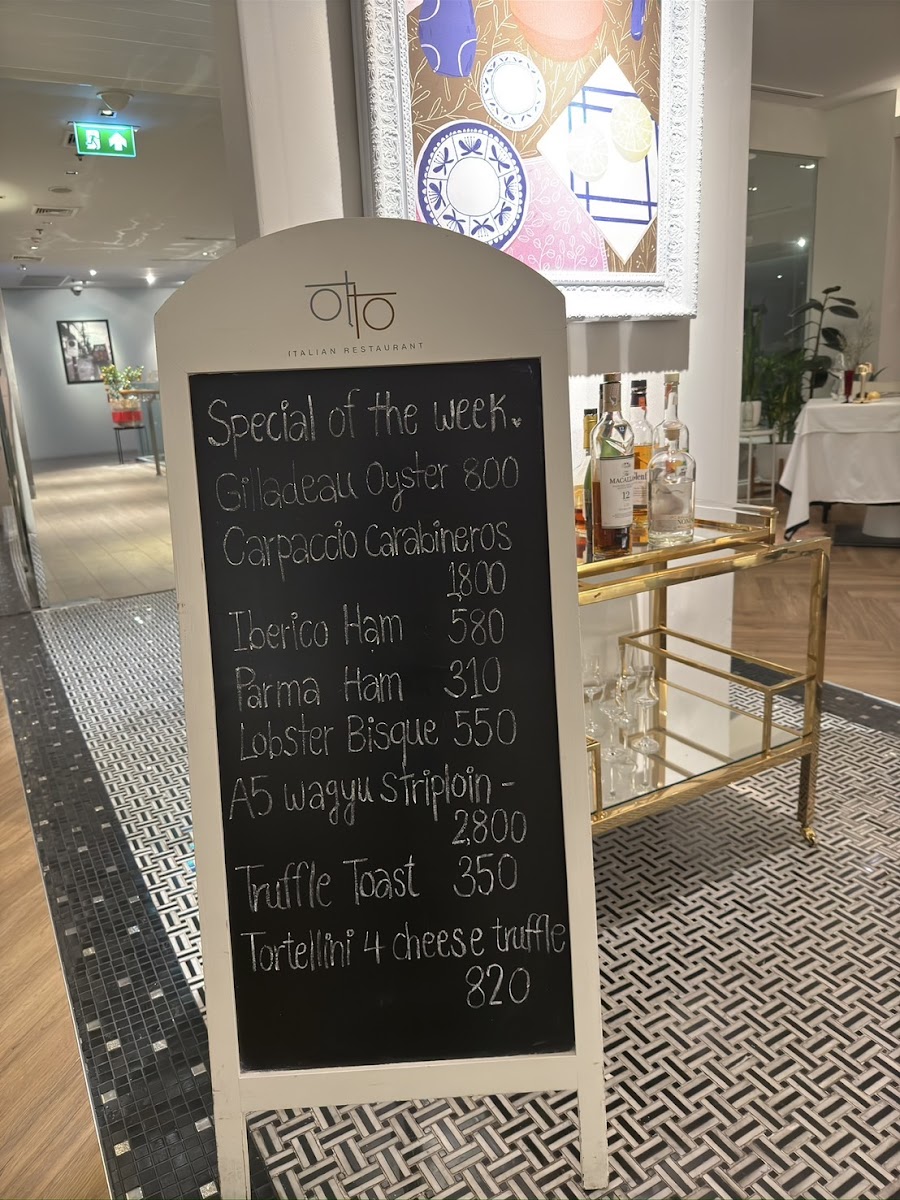 otto
ITALIAN RESTAURANT
Special of the week
Gilladeau Oyster 800
Carpaccio Carabineros
1800
Iberico Ham 580
Parma Ham 310
Lobster Bisque 550
A5 wagyu striploin -
2,800
Truffle Toast 350
Tortellini 4 cheese truffle
820
MACALLAN
12